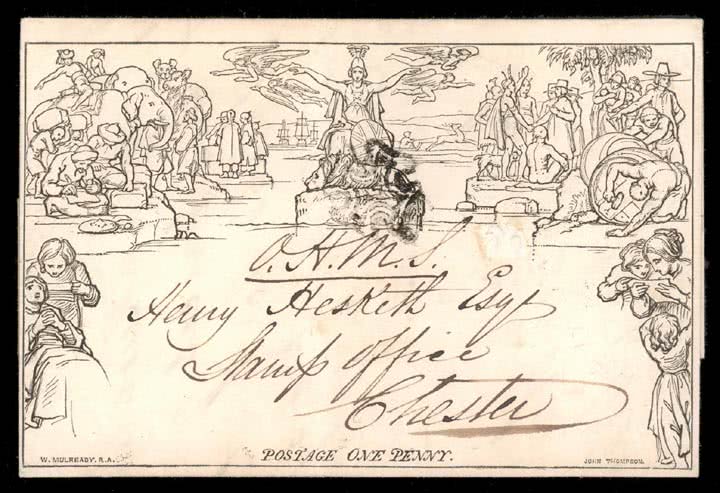 O.H.M.S.
Henry Hesketh Esqr
Stamp Office
Chester
W. MULREADY. R.A.
POSTAGE ONE PENNY.
JOHN THOMPSON.